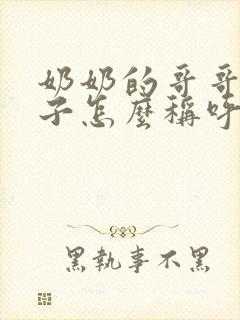 奶奶的哥哥
子怎麼稱呼
黑執事不黑